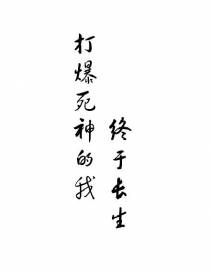 打爆死神的我
终于长生